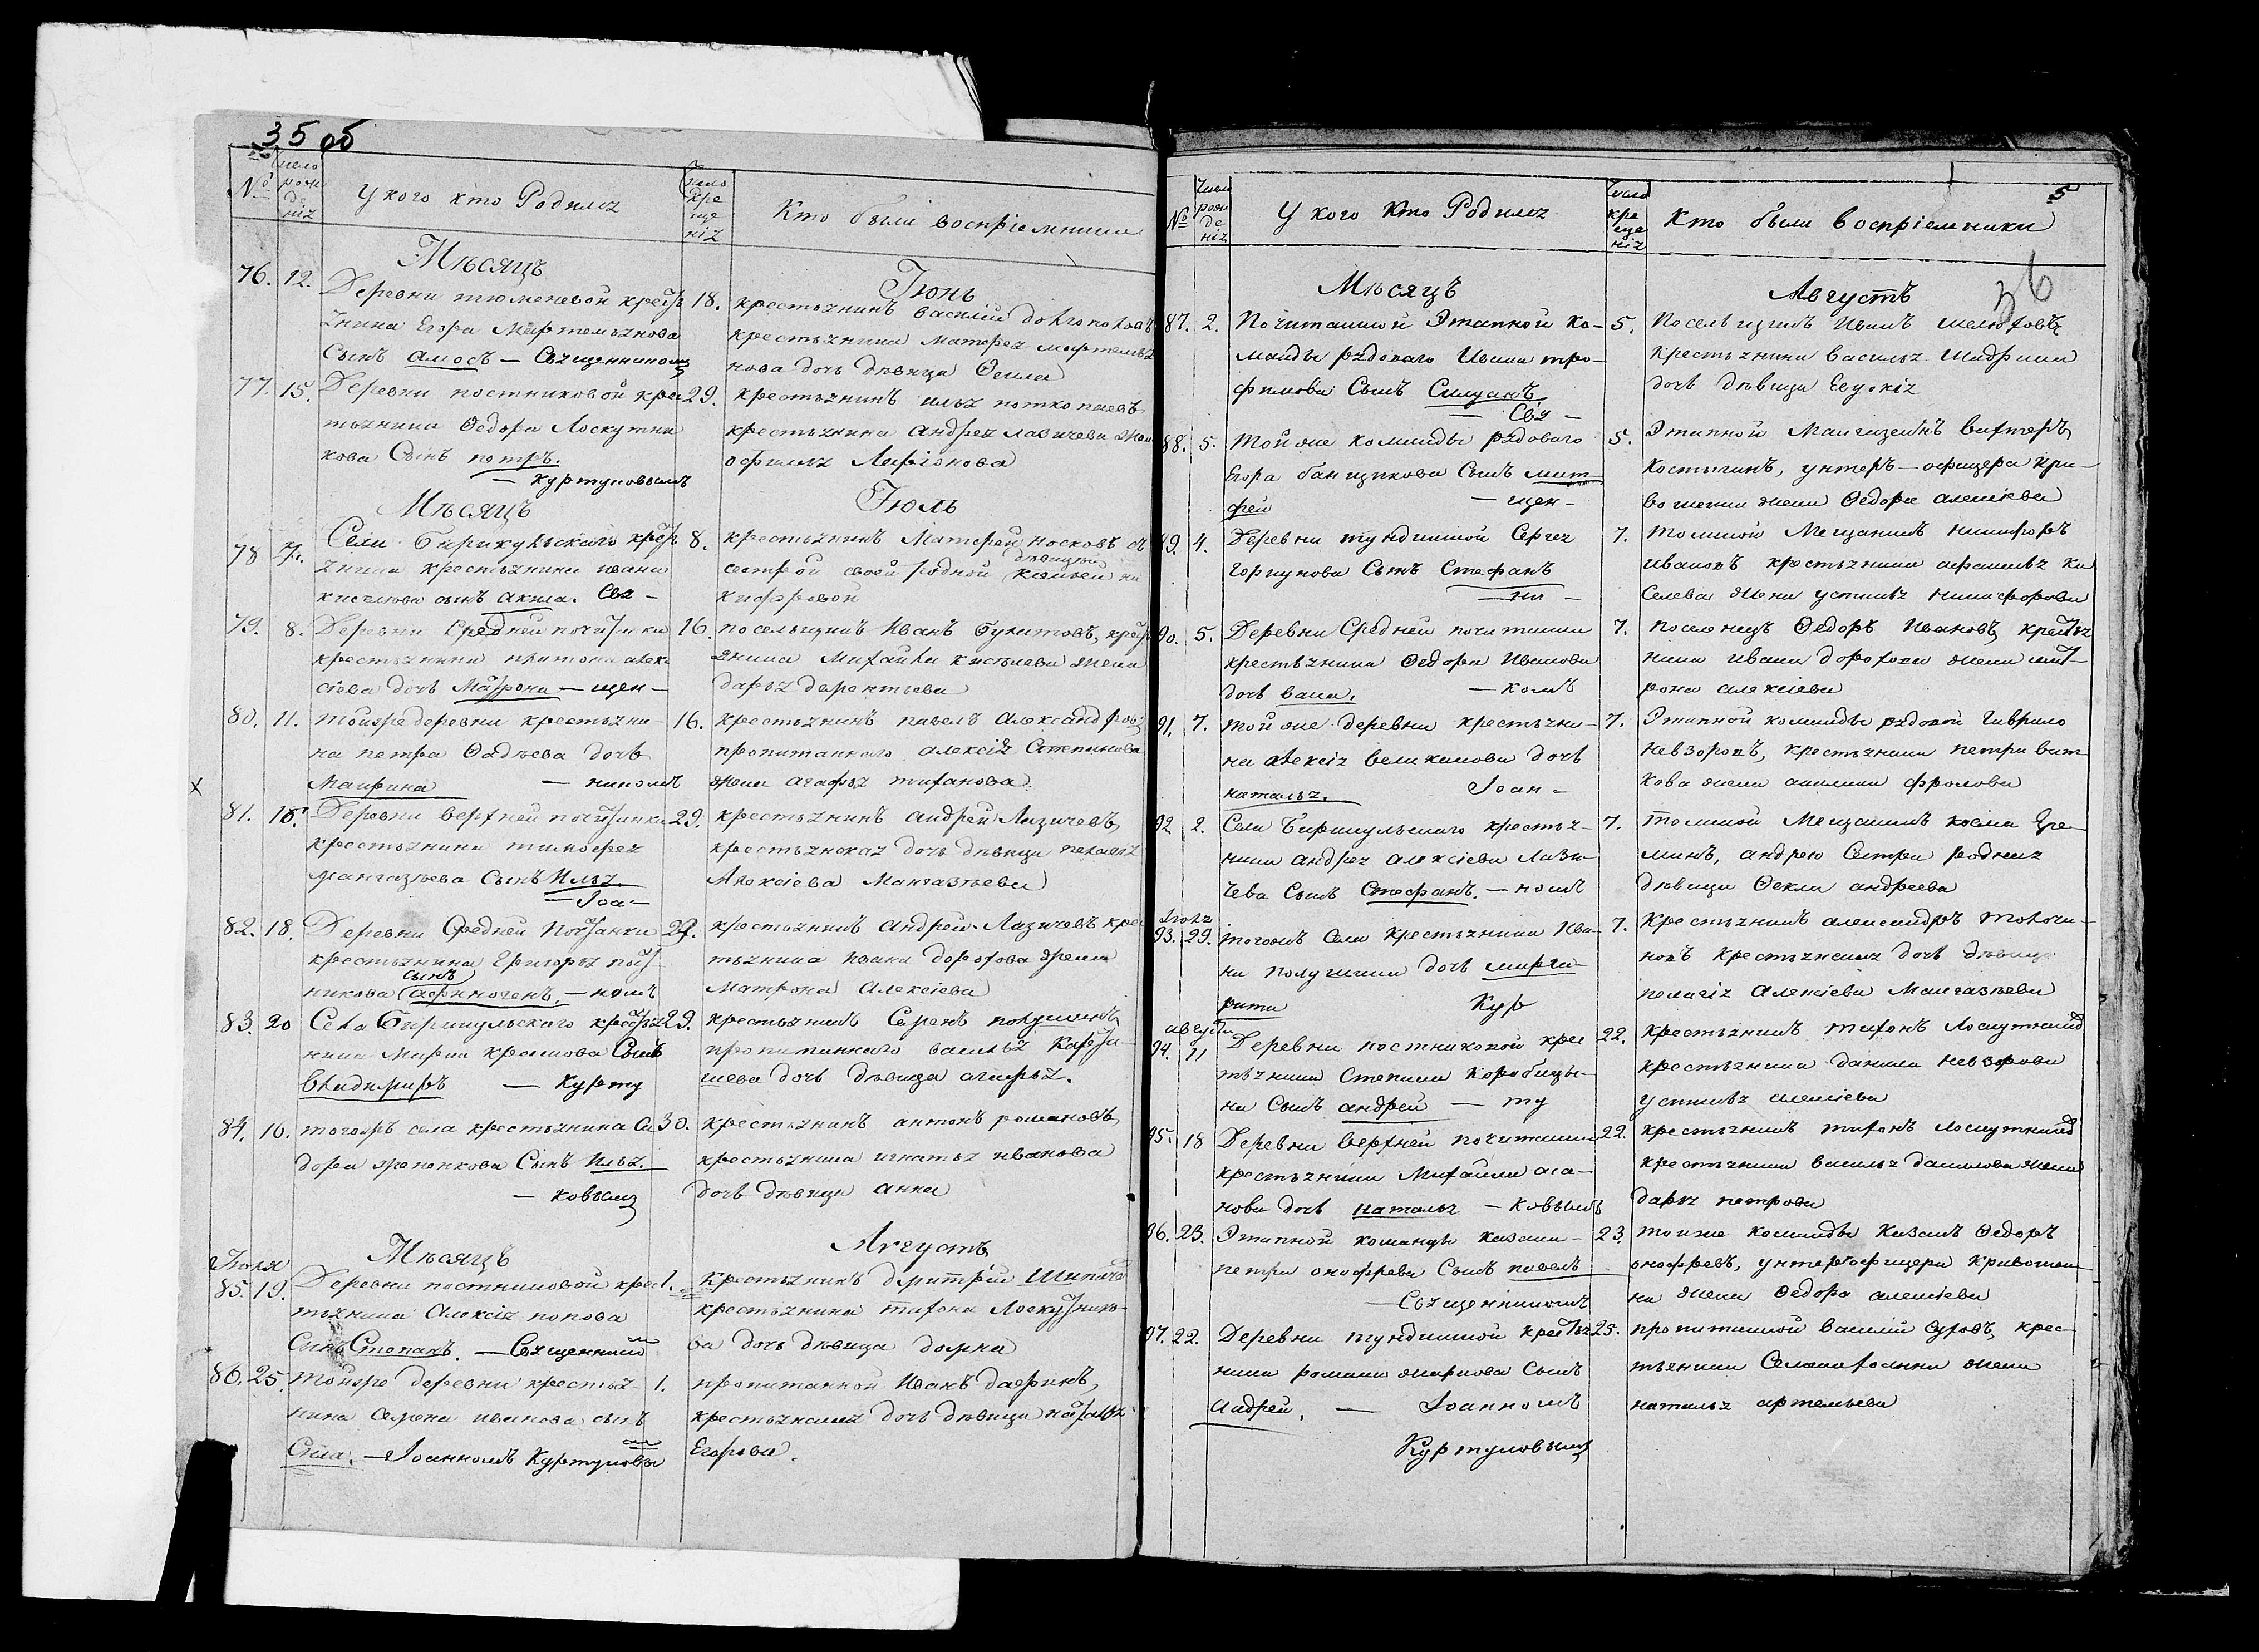 35 об
№ число рожденія У кого кто Родился Число крещенія Кто были воспріемники
Мѣсяцъ Іюнь
76. 12. Деревни тюменевой крест 18.
янина Егора Мартемьянова
Сынъ Амосъ — Священникомъ
крестьянинъ василій
крестьянина Матфея мартемья
нова дочь дѣвица Фекла
77. 15. Деревни постниковой крес 29.
тьянина Федора Лоскутни
кова Сынъ петръ.
— Куртуковымъ
крестьянинъ илья
крестьянина андрея лазичева жена
офимья Ларіонова
Мѣсяцъ Іюль
78 Села Бирикульского крест 8.
янина крестьянина ивана
киселева сынъ акила. Свя —
крестьянинъ Матфей носковъ съ
сестрой своей родной дѣвицею ни
кифоровой
79. 8. Деревни Средней почитанки 16.
крестьянина алек
сіева дочь Матрона — щен —
посельщикъ Иванъ крест
янина Михайла киселева жена
дарья дементьева
80. 11. тойже деревни крестьяни 16.
на петра Фадѣева дочь
Маирина — никомъ
крестьянинъ павелъ Александровъ
пропитаннаго алексія Степанова
жена агафья тиханова
81. 18. Деревни верхней почитанки 29.
крестьянина тимофея
мангазѣева Сынъ Илья.
— Іоа —
крестьянинъ андрей Лазичевъ
крестьянская дочь дѣвица пелагея
Алексіева Мангазѣева
82. 18. Деревни Средней Почитанки 29.
крестьянина Григорья пост
никова сынъ афиногенъ. — номъ
крестьянинъ андрей Лазичевъ крес
тьянина ивана дорохова жена
Матрона Алексіева
83. 20 Села Бирикульского крестья 29.
нина Марка крашова Сынъ
Владимиръ — Курту
крестьянинъ Семенъ полушинъ
пропитаннаго василья
шева дочь дѣвица агафья.
84. 10. тогожъ села крестьянина Си 30.
дора жепенкова Сынъ Илья.
— ковымъ
крестьянинъ антонъ романовъ
крестьянина игнатья иванова
дочь дѣвица анна
Мѣсяцъ Августъ
Іюля
85. 19. Деревни постниковой крес 1.
тьянина Алексія попова
Сынъ Степанъ. — Священник
крестьянинъ дмитрій
крестьянина тихона Лоскутнико
ва дочь дѣвица домна
86. 25. тойже деревни крестья 1.
нина Семена иванова сынъ
Сила. — Іоанномъ Куртуковы
пропитанной Иванъ
крестьянская дочь дѣвица наталья
Егорова.
5
№ Число рожденія У кого Кто Родился Число крещенія Кто были воспріемники
36
Мѣсяцъ Августъ
87. 2. Почитанской Этапной Ко- 5.
манды рядоваго Ивана тро-
фимова Сынъ
— Свя —
Поселыцикъ Иванъ
крестьянина василья Шадрина
дочь дѣвица Евдокія
88. 5. Той же команды рядоваго 5.
Егора банщикова Сынъ мат-
фей — щен —
Этапной Магазеинъ вахтеръ
Костыгинъ, унтеръ-офицера кри-
вошеина жена Федора алексіева
89. 4. Деревни тундинской Сергея 7.
Горшунова Сынъ Стефанъ
— ни —
томской Мещанинъ никифоръ
ивановъ крестьянина афанасья ки
селева жена устинья никифорова
90. 5. Деревни Средней почитанки 7.
крестьянина Федора Иванова
дочь васа. — комъ
поселенецъ Федоръ Ивановъ, крестья
нина ивана дорохова жена мат-
рона алексіева
91. 7. той же деревни крестьяни- 7.
на алексія великанова дочь
наталья. Іоан —
Этапной команды рядовой Гаврило
невзоровъ, крестьянина петра вят
кова жена акилина фролова
92 2. Села Бирикульскаго крестья- 7.
нина андрея алексіева Лази-
чева Сынъ Стефанъ. — номъ
томской Мещанинъ косма Ере-
минъ, андрею Сестра родная
дѣвица Фекла андреева
Іюля
93. 29. тогожъ Села Крестьянина Ива- 7.
на полушина дочь марга-
рита Кур
Крестьянинъ александръ толочи-
новъ крестьянская дочь дѣвица
пелагія Алексіева Мангазѣева
Августа
94. 11 Деревни постниковой крес 22.
тьянина Степана Коробицы-
на Сынъ андрей — ту
крестьянинъ тихонъ Лоскутник
крестьянина данила невзорова
устинья алексіева
95. 18 Деревни верхней почитанки 22.
крестьянина Михайла аса-
нова дочь наталья — ковымъ
крестьянинъ тихонъ лоскутник
крестьянина василья данилова жена
дарья петрова
96. 23. Этапной команды Казака 23.
петра онофрева Сынъ павелъ
— Священникомъ
тоиже команды Казакъ Федоръ
онофревъ, унтеръ-офицера Кривошеи
на жена Федора алексіева
97. 22. Деревни тундинской крестья 25.
нина романа маркова Сынъ
Андрей. — Іоанномъ
Куртуковымъ
пропитанной василій Суховъ, крес-
тьянина жена
наталья артемьева